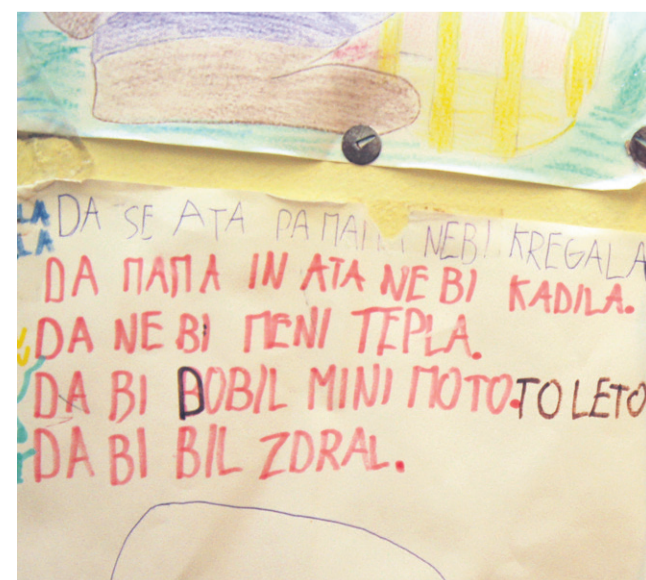 LA DA SE ATA PA NEBI KREGALA
LA
DA MAMA IN ATA NE BI KADILA.
DA NE BI MENI TEPLA.
DA BI DOBIL MINI MOTO. TO LETO
DA BI BIL ZDRAL.